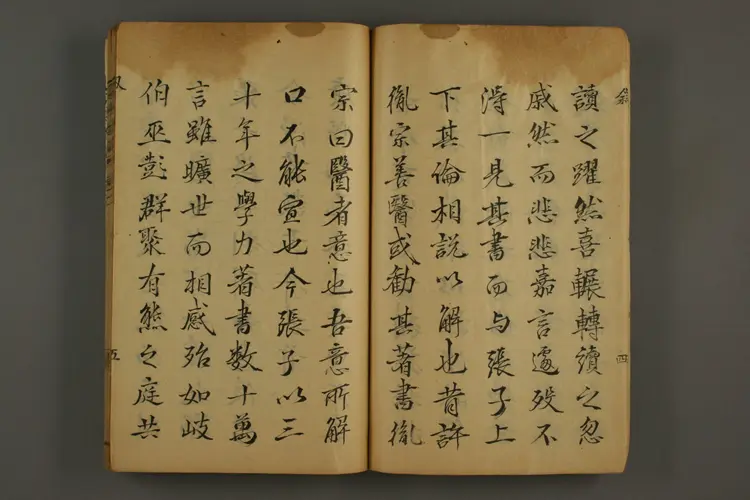 讀之躍然喜輾轉讀之忽
戚然而悲悲嘉言遽歿不
得一見其書而与張子上
下其倫相説以解也昔許
胤宗善醫或勸其著書胤
宗曰醫者意也吾意所解
口不能宣也今張子以三
十年之學力著書数十萬
言雖曠世而相感殆如岐
伯巫彭群聚有熊之庭共
四
五